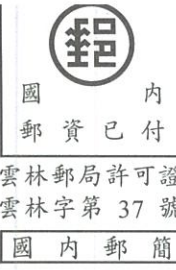 郵
國 內
郵資已付
雲林郵局許可證
雲林字第 37 號
國內郵簡